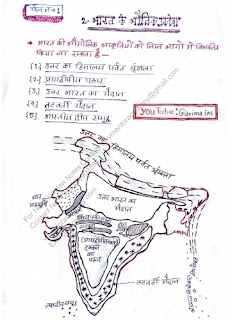 2. भारत के भौतिक प्रदेश
→ भारत की भौगोलिक आकृतियों को निम्न भागों में विभाजित
किया जा सकता है -
(1) उत्तर का हिमालय पर्वत श्रृंखला
(2) प्रायद्वीपीय पठार
(3) उत्तर भारत का मैदान
(4) तटवर्ती मैदान
(5) भारतीय द्वीप समूह
YouTube: Garima ins
उत्तर का हिमालय पर्वत श्रृंखला
थार
उत्तर भारत का
मैदान
(प्रायद्वीपीय)
का
पठार
तटवर्ती मैदान